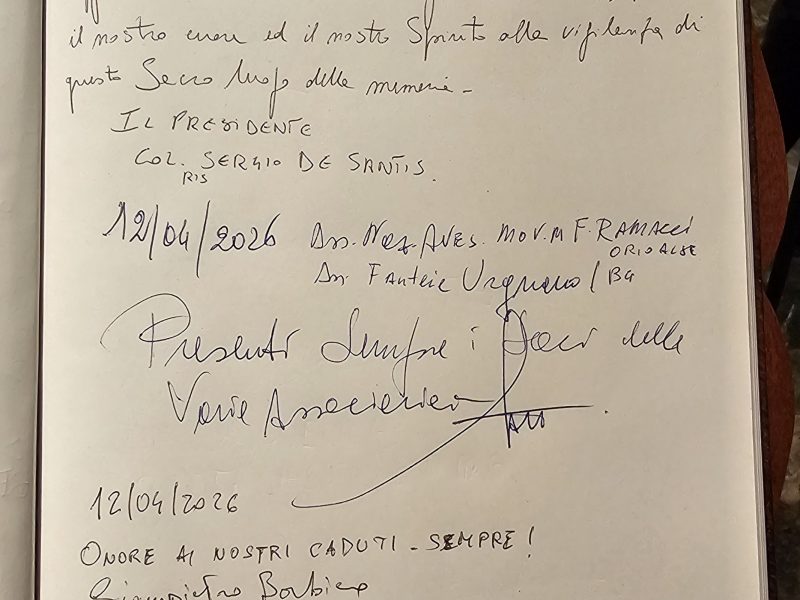 il nostro cuore ed il nostro Spirito alla vigilanza di
questo Sacro luogo della memoria -
IL PRESIDENTE
COL. SERGIO DE SANTIS.
RIS
12/04/2026 Ass. Naz. AVES. MOV.M F. RAMACCI
ORIO ALSE
Ass. Fanterie Urgnano / BG
Presenti Sempre i Soci delle
Varie Associazioni
12/04/2026
ONORE AI NOSTRI CADUTI - SEMPRE!
Giampietro